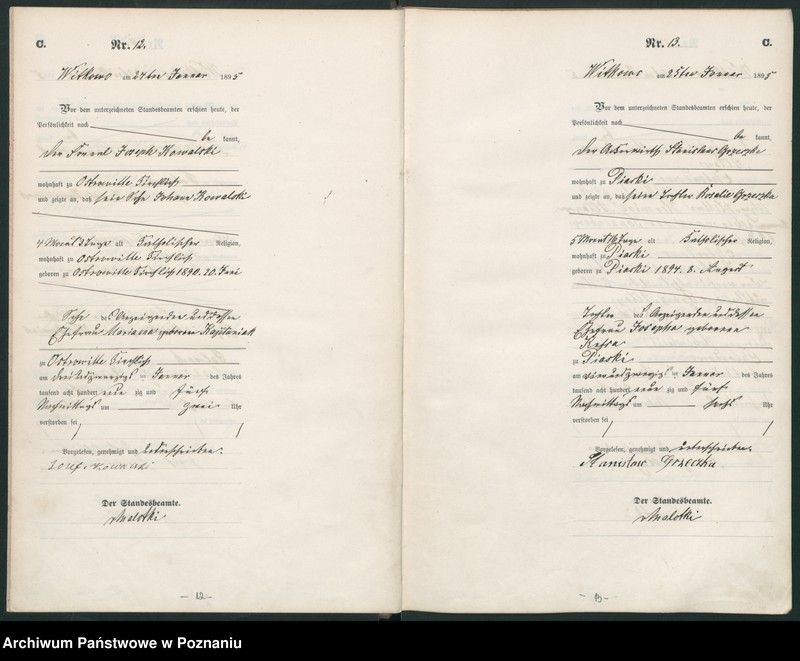 C. Nr. 12.
Witkowo am 24ten Januar 1895
Vor dem unterzeichneten Standesbeamten erschien heute, der
Persönlichkeit nach
be kannt,
der Joseph Kowalski
wohnhaft zu Ostrowitte
und zeigte an, daß sein Sohn Johann Kowalski
4 Monat Tage alt Katholischer Religion,
wohnhaft zu Ostrowitte
geboren zu Ostrowitte 20. Juni
Sohn des Anzeigenden und dessen
Ehefrau Marianna geborenen
zu Ostrowitte
am drei und zwanzigsten Januar des Jahres
tausend acht hundert neun zig und fünf
Nachmittags um zwei Uhr
verstorben sei
Vorgelesen, genehmigt und unterschrieben.
Josef Kowalski
Der Standesbeamte.
Malotki
— 12 —
Nr. 13. C.
Witkowo am 25ten Januar 1895
Vor dem unterzeichneten Standesbeamten erschien heute, der
Persönlichkeit nach
be kannt,
der Ackerwirth Stanislaus Grzeszka
wohnhaft zu Piaski
und zeigte an, daß seine Tochter Rosalie Grzeszka
5 Monat 16 Tage alt Katholischer Religion,
wohnhaft zu Piaski
geboren zu Piaski 1894. 8. August
Tochter des Anzeigenden und dessen
Ehefrau Josepha geborenen
zu Piaski
am vier und zwanzigsten Januar des Jahres
tausend acht hundert neun zig und fünf
Nachmittags um sechs Uhr
verstorben sei
Vorgelesen, genehmigt und unterschrieben.
Stanisław
Der Standesbeamte.
Malotki
— 13 —
Archiwum Państwowe w Poznaniu